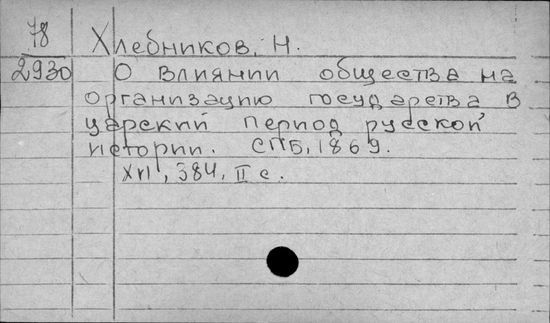 78
2930
Хлебников, Н.
О влиянии общества на
организацию государства в
царский период русской
истории. СПБ, 1869.
XVI, 384, II с.